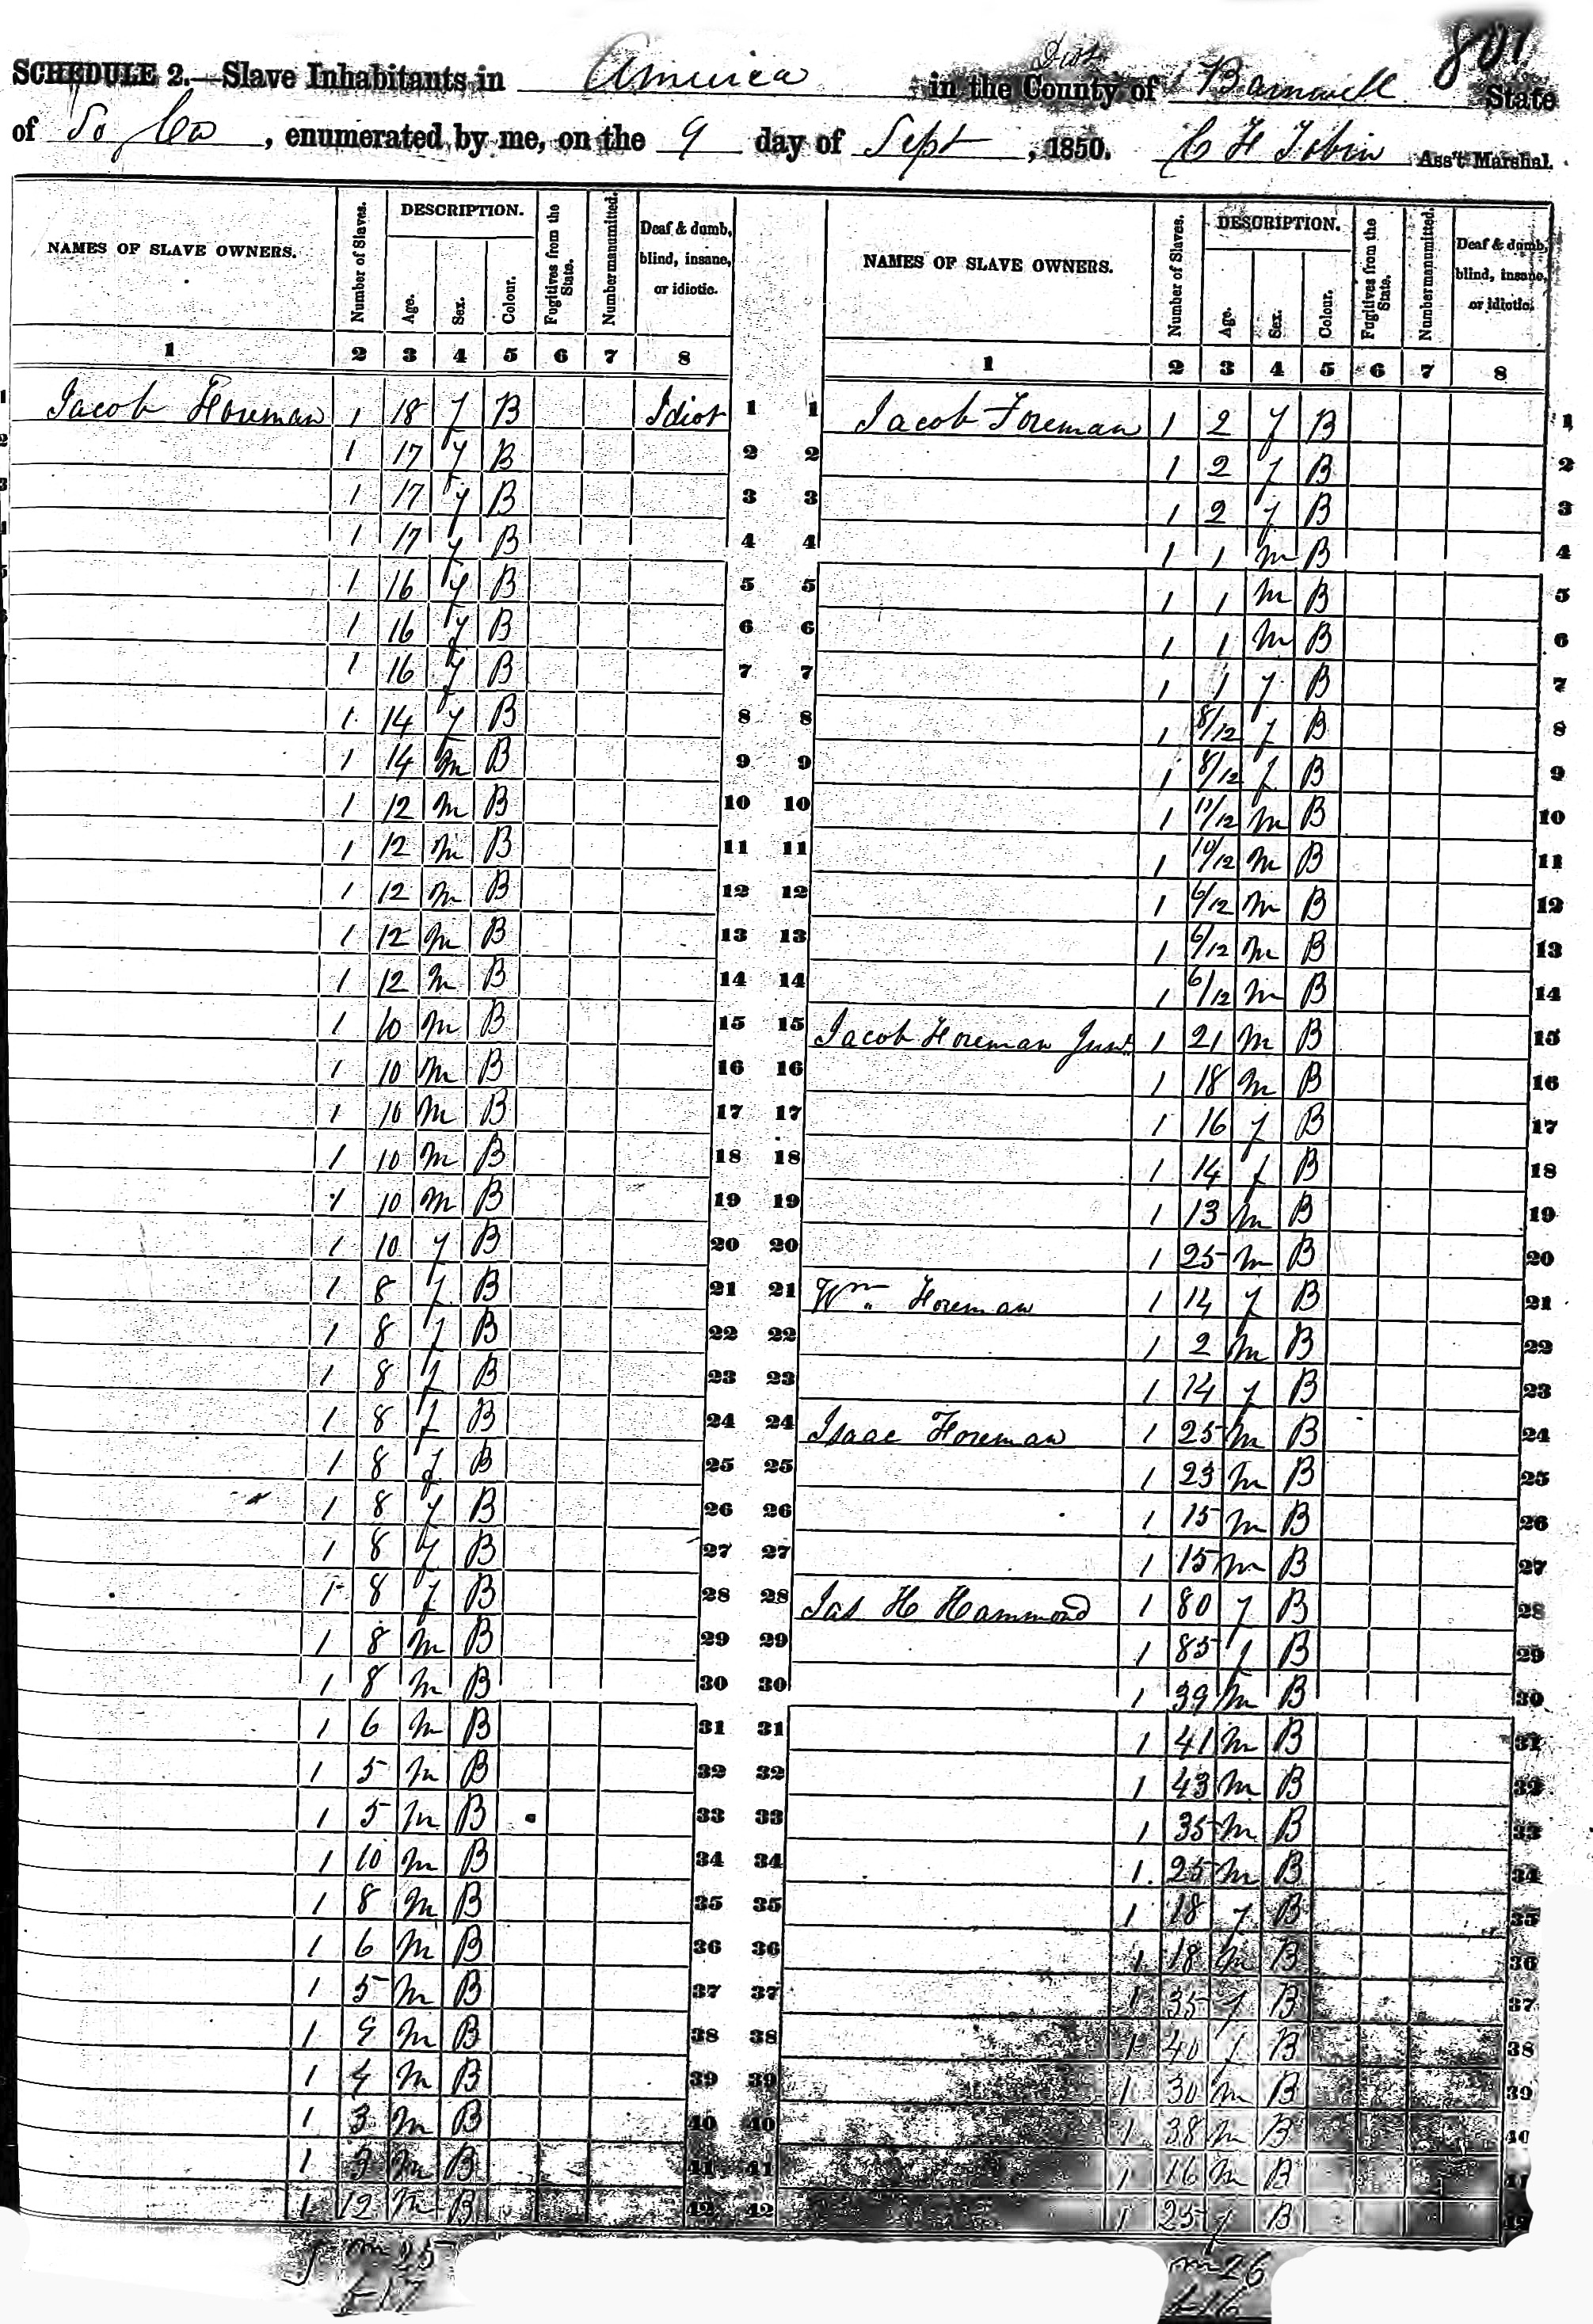 801
SCHEDULE 2.—Slave Inhabitants in America in the County of Dist Barnwell State
of So Ca, enumerated by me, on the 9 day of Sept, 1850. C H Tobin Ass't Marshal.
NAMES OF SLAVE OWNERS. Number of Slaves. DESCRIPTION. Age. Sex. Colour. Fugitives from the State. Number manumitted. Deaf & dumb, blind, insane, or idiotic.
1 2 3 4 5 6 7 8
1 Jacob Foreman 1 18 f B Idiot 1
2 1 17 f B 2
3 1 17 f B 3
4 1 17 f B 4
5 1 16 f B 5
1 16 f B 6
1 16 f B 7
1 14 f B 8
1 14 m B 9
1 12 m B 10
1 12 m B 11
1 12 m B 12
1 12 m B 13
1 12 m B 14
1 10 m B 15
1 10 m B 16
1 10 m B 17
1 10 m B 18
1 10 m B 19
1 10 f B 20
1 8 f B 21
1 8 f B 22
1 8 f B 23
1 8 f B 24
1 8 f B 25
1 8 f B 26
1 8 f B 27
1 8 f B 28
1 8 m B 29
1 8 m B 30
1 6 m B 31
1 5 m B 32
1 5 m B 33
1 10 m B 34
1 8 m B 35
1 6 m B 36
1 5 m B 37
1 m B 38
1 4 m B 39
1 3 m B 40
1 3 m B 41
1 12 m B 42
m 25
f 17
NAMES OF SLAVE OWNERS. Number of Slaves. DESCRIPTION. Age. Sex. Colour. Fugitives from the State. Number manumitted. Deaf & dumb, blind, insane, or idiotic.
1 2 3 4 5 6 7 8
1 Jacob Foreman 1 2 f B 1
2 1 2 f B 2
3 1 2 f B 3
4 1 1 m B 4
5 1 1 m B 5
6 1 1 m B 6
7 1 1 f B 7
8 1 8/12 f B 8
9 1 8/12 f B 9
10 1 11/12 m B 10
11 1 10/12 m B 11
12 1 6/12 m B 12
13 1 6/12 m B 13
14 1 6/12 m B 14
15 Jacob Foreman Junr. 1 21 m B 15
16 1 18 m B 16
17 1 16 f B 17
18 1 14 f B 18
19 1 13 m B 19
20 1 25 m B 20
21 Wm. Foreman 1 14 f B 21
22 1 2 m B 22
23 1 14 f B 23
24 Isaac Foreman 1 25 m B 24
25 1 23 m B 25
26 1 15 m B 26
27 1 15 m B 27
28 Jas H Hammond 1 80 f B 28
29 1 85 f B 29
30 1 39 m B 30
31 1 41 m B 31
32 1 43 m B 32
33 1 35 m B 33
34 1 25 m B 34
35 1 18 f B 35
36 1 18 m B 36
37 1 35 f B 37
38 1 40 f B 38
39 1 30 m B 39
40 1 38 m B 40
41 1 16 m B 41
42 1 25 f B 42
m 26
f 16